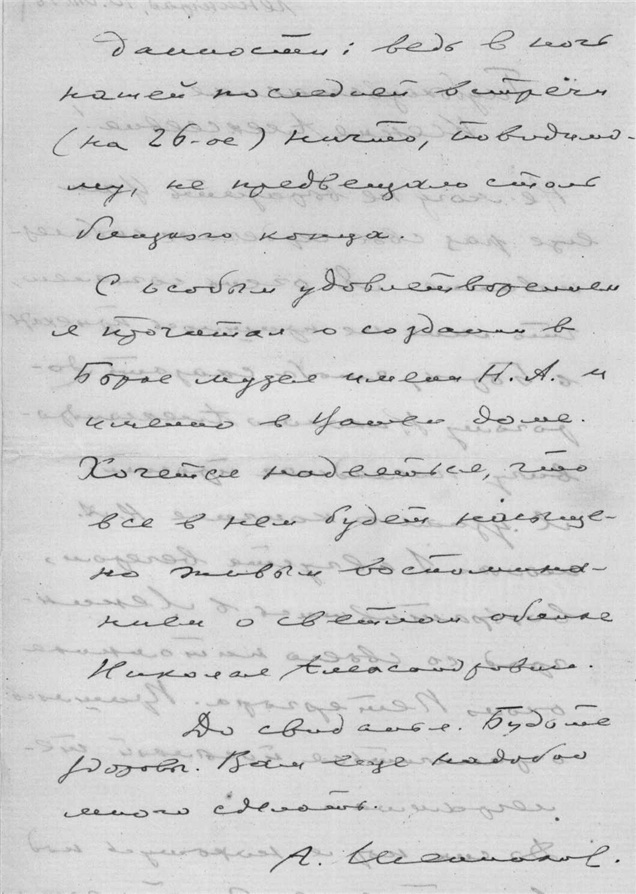 данности: ведь в ночь
нашей последней встречи
(на 26-ое) ничто, повидимо-
му, не предвещало столь
близкого конца.
С особым удовлетворением
я прочитал о создании в
Борке музея имени Н. А. и
именно в Вашем доме.
Хочется надеяться, что
все в нем будет насыще-
но живым воспомина-
нием о светлом облике
Николая Александровича.
До свиданья. Будьте
здоровы. Вам еще надобно
много сделать.
А.